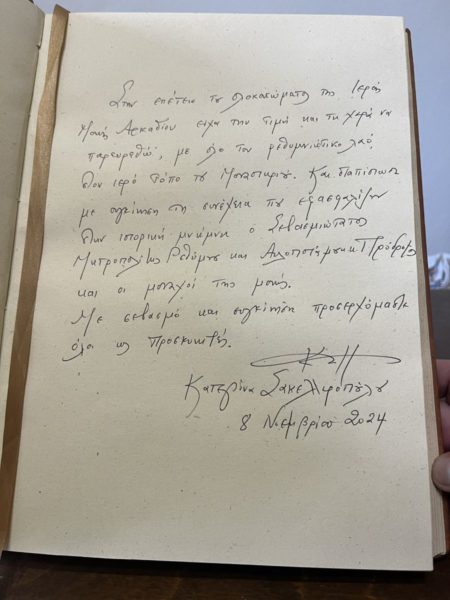 Στην επέτειο του ολοκαυτώματος της Ιεράς
Μονής Αρκαδίου είχα την τιμή και τη χαρά να
παρευρεθώ, με όλο τον ρεθυμνιώτικο λαό,
στον ιερό τόπο του Μοναστηριού. Και διαπίστωσα
με συγκίνηση τη συνέχεια που εξασφαλίζουν
στην ιστορική μνήμη ο Σεβασμιώτατος
Μητροπολίτης Ρεθύμνου και Αυλοποτάμου κ. Πρόδρομος
και οι μοναχοί της μονής.
Με σεβασμό και συγκίνηση προσερχόμαστε
όλοι ως προσκυνητές.
Κατερίνα Σακελλαροπούλου
8 Νοεμβρίου 2024